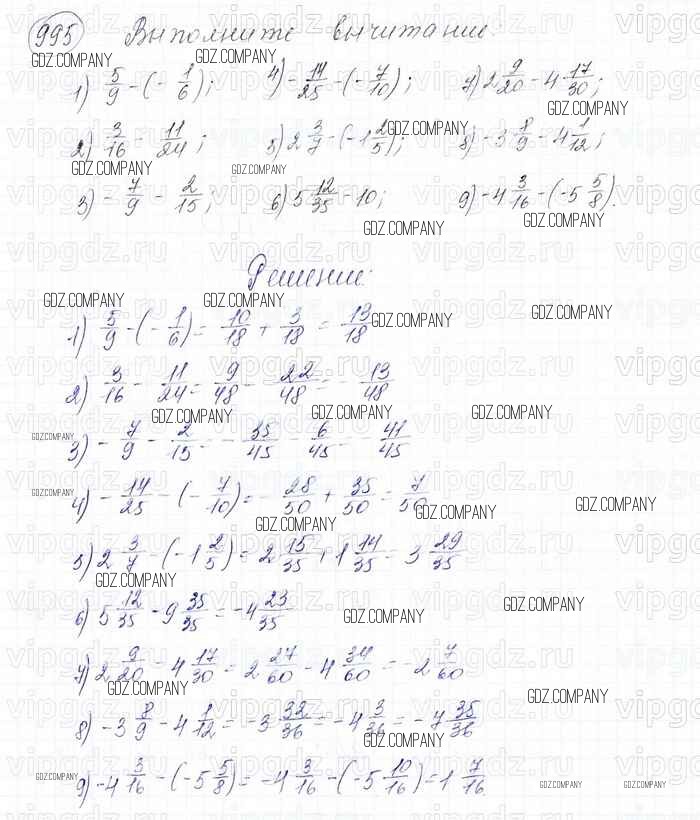 995 Выполните вычитание:
1) 5/9 - (- 1/6); 4) - 14/25 - (- 7/10); 7) 2 9/20 - 4 17/30;
2) 3/16 - 11/24; 5) 2 3/7 - (- 1 2/5); 8) - 3 8/9 - 4 1/12;
3) - 7/9 - 2/15; 6) 5 12/35 - 10; 9) - 4 3/16 - (- 5 5/8).
Решение:
1) 5/9 - (- 1/6) = 10/18 + 3/18 = 13/18
2) 3/16 - 11/24 = 9/48 - 22/48 = - 13/48
3) - 7/9 - 2/15 = - 35/45 - 6/45 = - 41/45
4) - 14/25 - (- 7/10) = - 28/50 + 35/50 = 7/50
5) 2 3/7 - (- 1 2/5) = 2 15/35 + 1 14/35 = 3 29/35
6) 5 12/35 - 9 35/35 = - 4 23/35
7) 2 9/20 - 4 17/30 = 2 27/60 - 4 34/60 = - 2 7/60
8) - 3 8/9 - 4 1/12 = - 3 32/36 = - 4 3/36 = - 7 35/36
9) - 4 3/16 - (- 5 5/8) = - 4 3/16 - (- 5 10/16) = 1 7/16
GDZ.COMPANY
vipgdz.ru